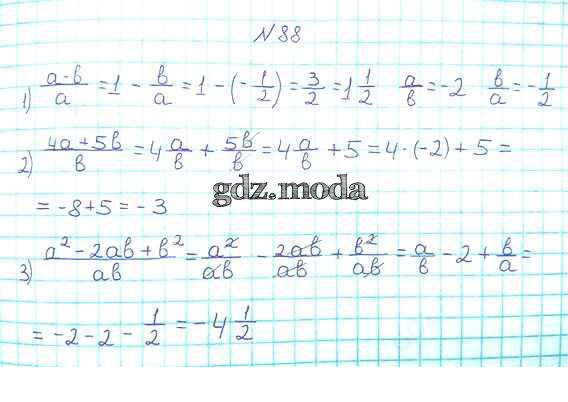 № 88
1) (a-b)/a = 1 - b/a = 1 - (-1/2) = 3/2 = 1 1/2 a/b = -2 b/a = -1/2
2) (4a+5b)/b = 4 a/b + 5b/b = 4 a/b + 5 = 4·(-2) + 5 =
gdz.moda
= -8+5 = -3
3) (a² - 2ab + b²)/ab = a²/ab - 2ab/ab + b²/ab = a/b - 2 + b/a =
= -2 - 2 - 1/2 = -4 1/2